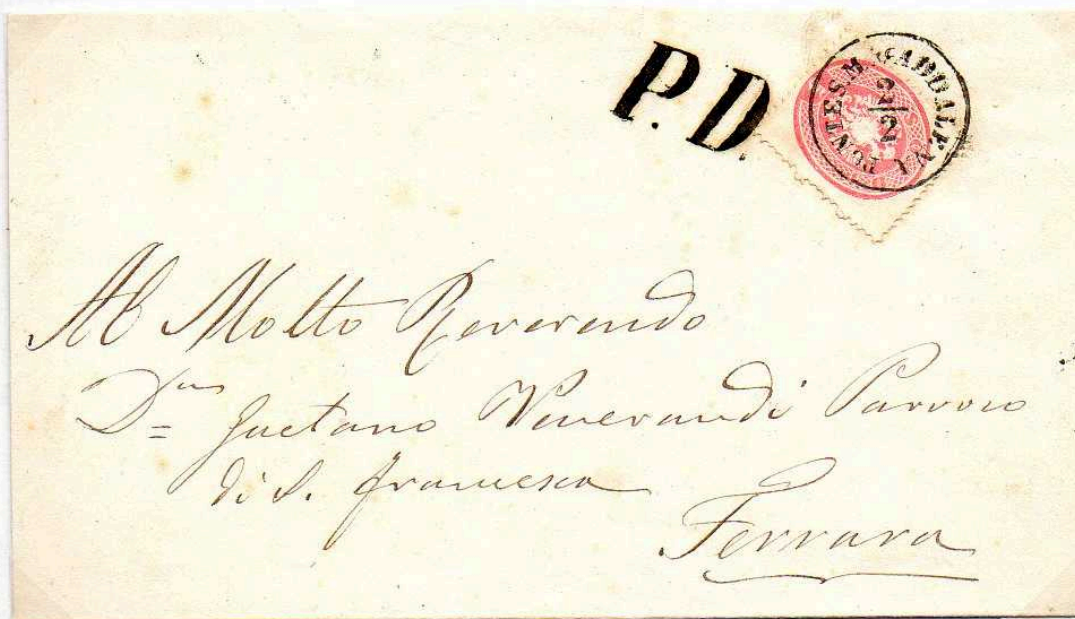 P.D.
PONTE S.M. MADDALENA
2/2
Al Molto Reverendo
Dn Gaetano Venerandi Parroco
di S. Francesco
Ferrara